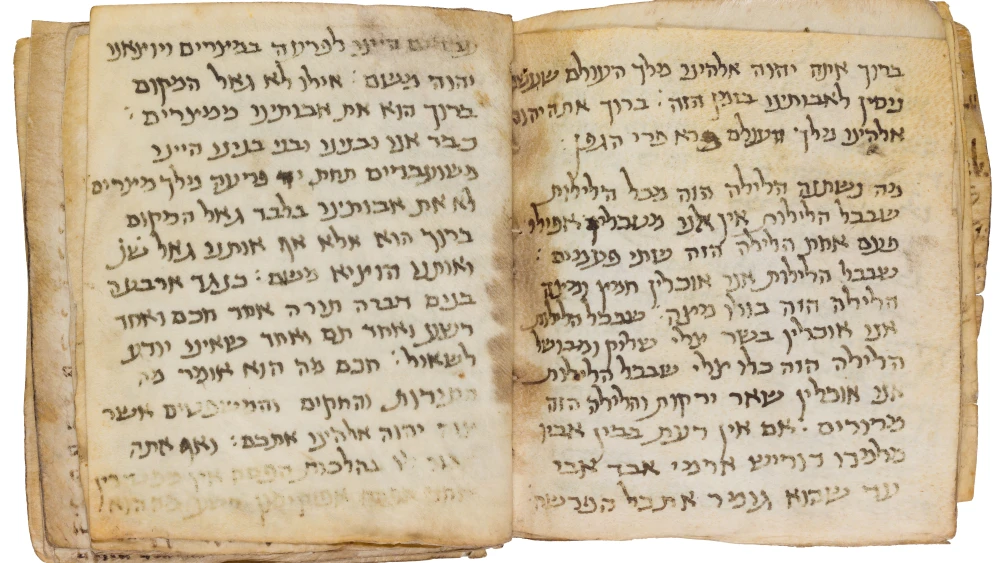 ברוך אתה יהוה אלהינו מלך העולם שעשה
ניסין לאבותינו בזמן הזה : ברוך אתה יהוה
אלהינו מלך העולם בורא פרי הגפן :
מה נשתנה הלילה הזה מכל הלילות
שבכל הלילות אין אנו מטבלין אפילו
פעם אחת הלילה הזה שתי פעמים :
שבכל הלילות אנו אוכלין חמץ ומצה
הלילה הזה כולו מצה : שבכל הלילות
אנו אוכלין בשר צלי שלוק ומבושל
הלילה הזה כלו צלי שבכל הלילות
אנו אוכלין שאר ירקות והלילה הזה
מרורים : אם אין דעת בבן אביו
מלמדו דורש ארמי אבד אבי
עד שהוא גומר את כל הפרשה
עבדים היינו לפרעה במצרים ויוציאנו
יהוה משם : אילו לא גאל המקום
ברוך הוא את אבותינו ממצרים :
כבר אנו ובנינו ובני בנינו היינו
משועבדים תחת יד פרעה מלך מצרים
לא את אבותינו בלבד גאל המקום
ברוך הוא אלא אף אותנו גאל שנ׳
ואותנו הוציא משם : כנגד ארבעה
בנים דברה תורה אחד חכם ואחד
רשע ואחד תם ואחד שאינו יודע
לשאול : חכם מה הוא אומר מה
העדות והחקים והמשפטים אשר
צוה יהוה אלהינו אתכם : ואף אתה
אמור לו כהלכות הפסח אין מפטירין
אחר הפסח אפיקומן